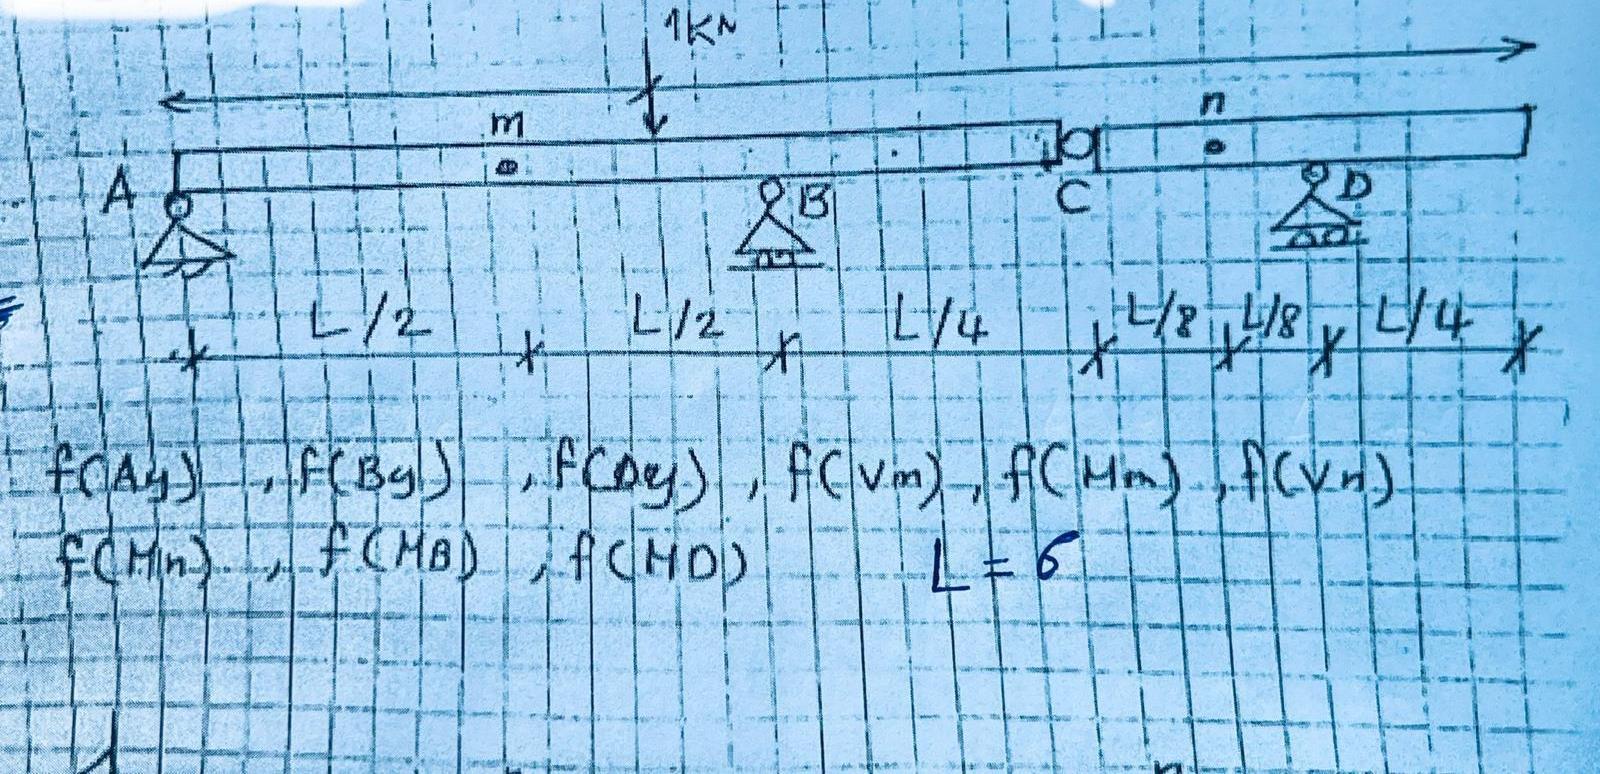 1KN
m n
A B C D
L/2 L/2 L/4 L/8 L/8 L/4
f(Ay) , f(By) , f(Dy) , f(Vm) , f(Mm) , f(Vn)
f(Mn) , f(MB) , f(MD) L = 6